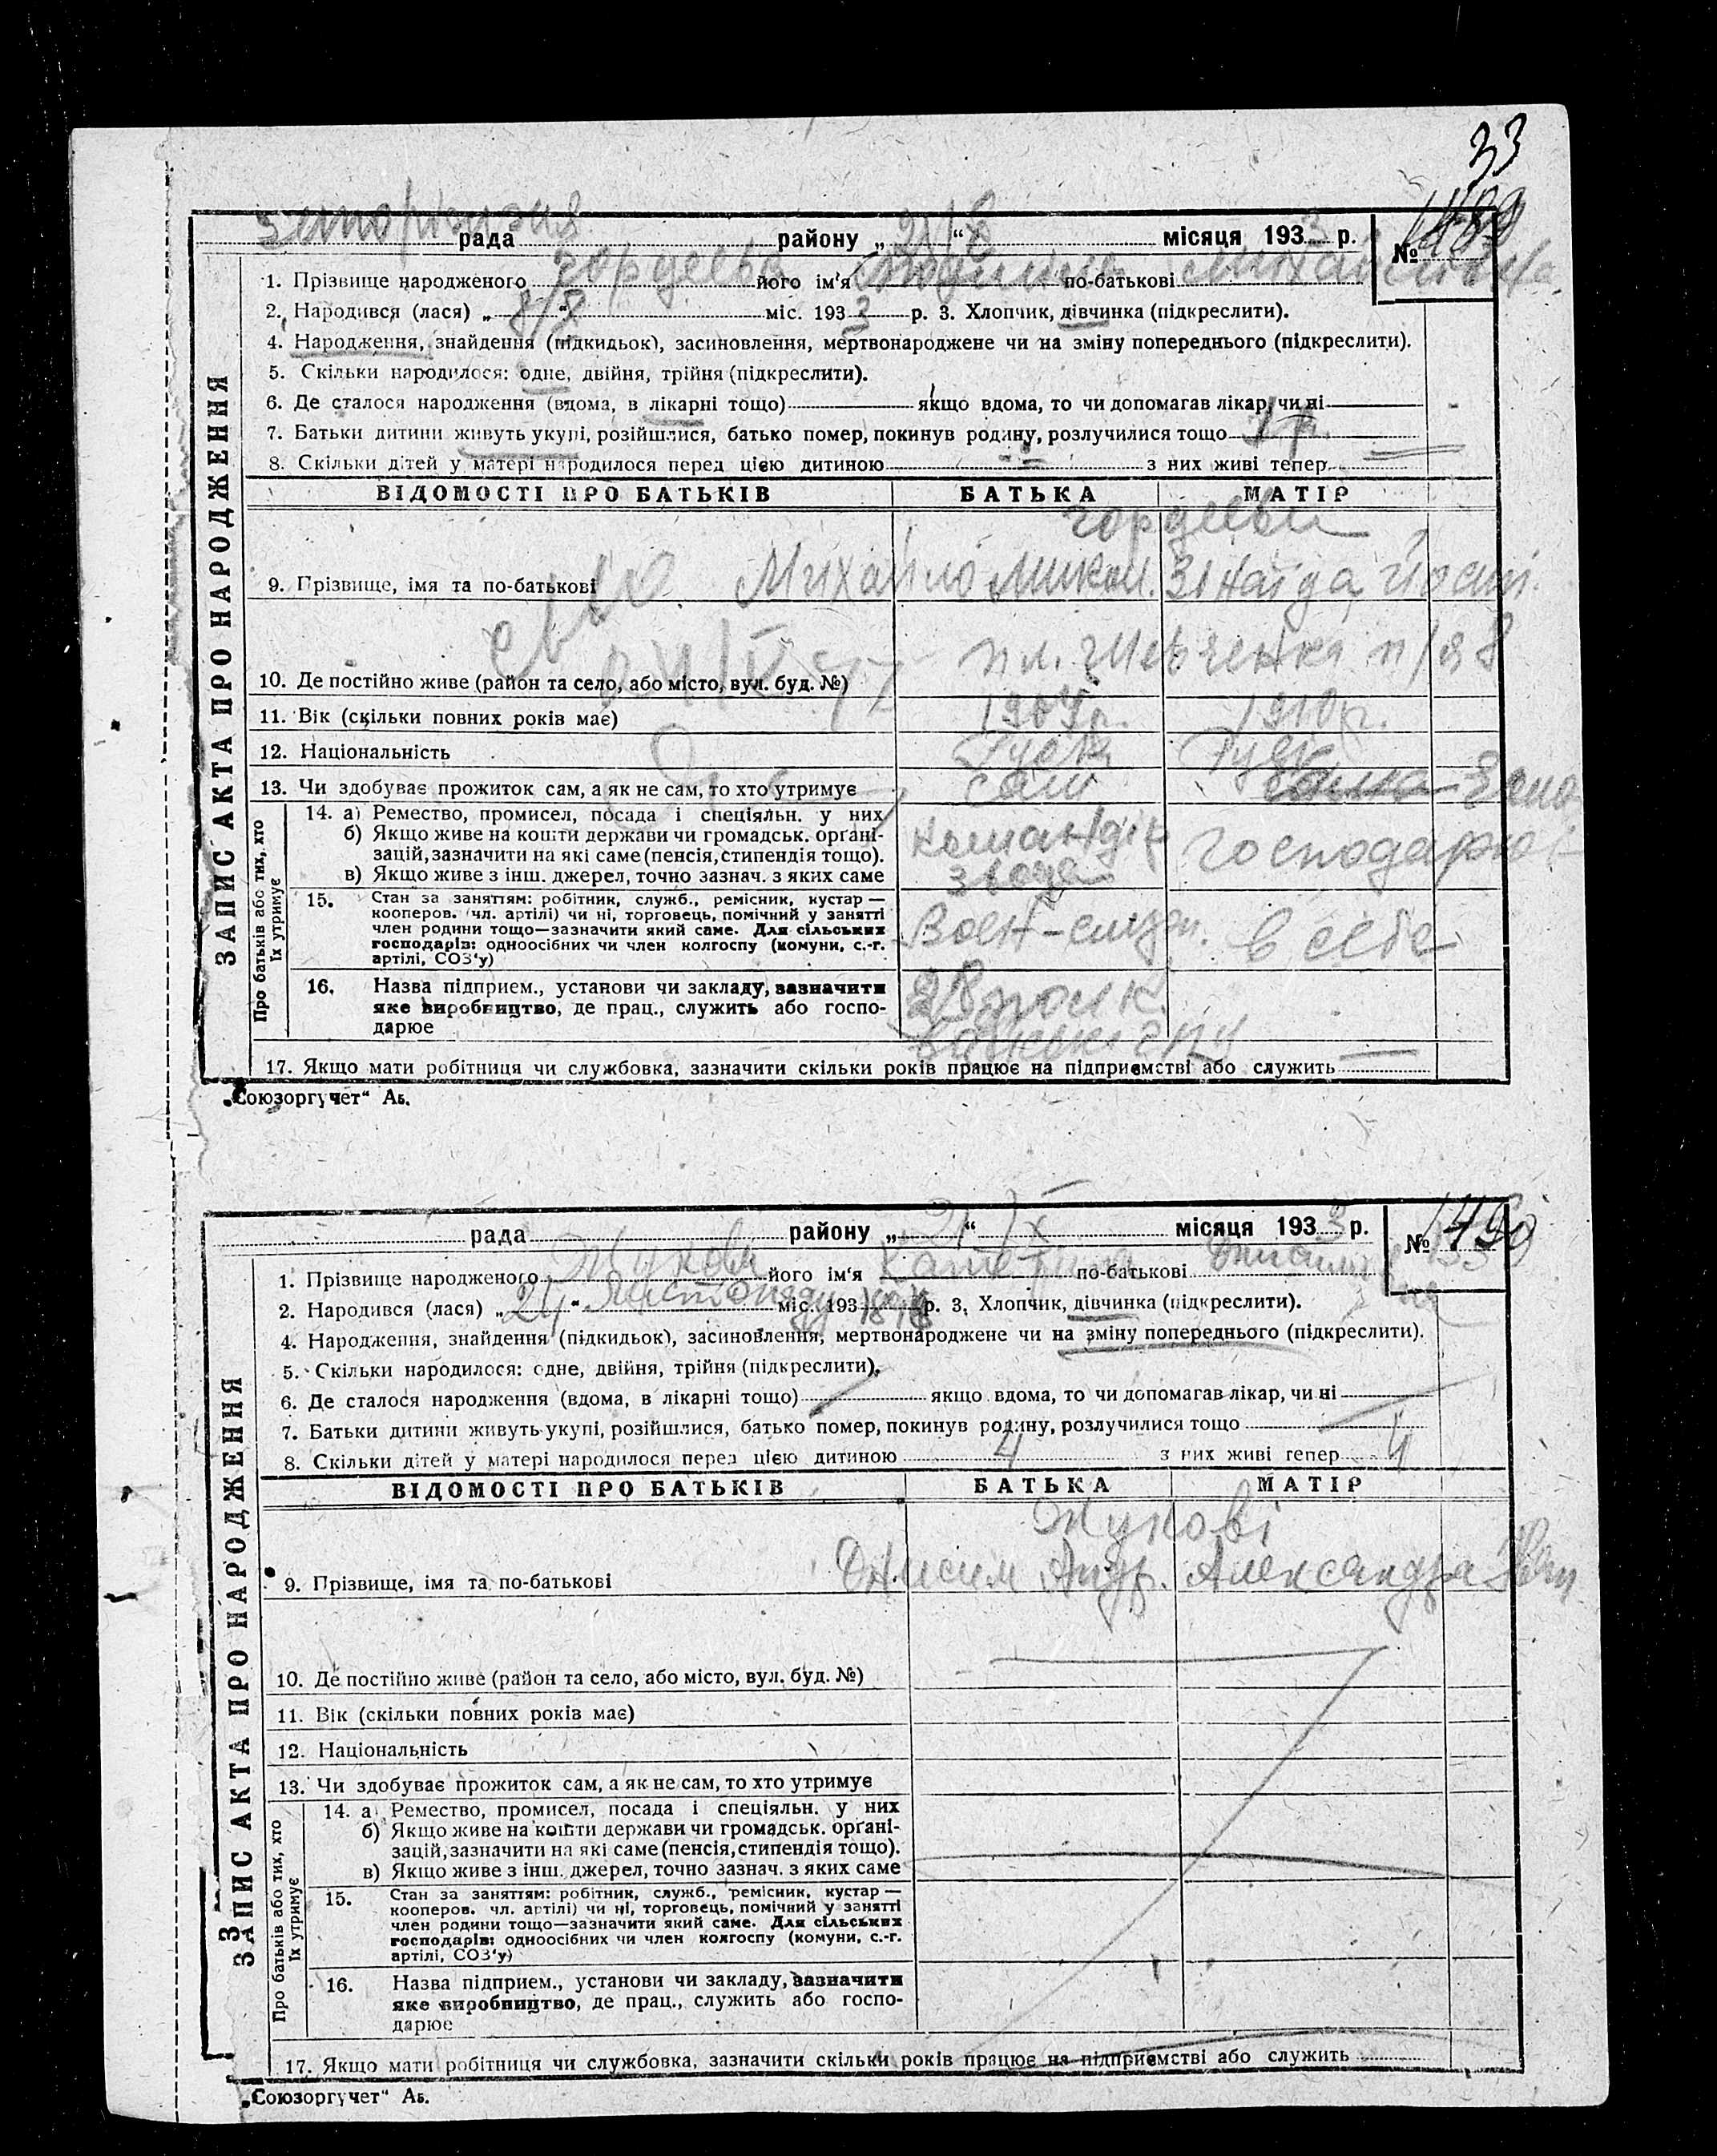 33
рада району „21“ місяця 1933 р. № 1489
1. Прізвище народженого Гордеева його ім'я Людмила по-батькові Михайловна
2. Народився (лася) „8/8“ міс. 1933 р. 3. Хлопчик, дівчинка (підкреслити).
4. Народження, знайдення (підкидьок), засиновлення, мертвонароджене чи на зміну попереднього (підкреслити).
5. Скільки народилося: одне, двійня, трійня (підкреслити).
6. Де сталося народження (вдома, в лікарні тощо) якщо вдома, то чи допомагав лікар, чи ні
7. Батьки дитини живуть укупі, розійшлися, батько помер, покинув родину, розлучилися тощо
8. Скільки дітей у матері народилося перед цією дитиною з них живі тепер
ЗАПИС АКТА ПРО НАРОДЖЕННЯ
ВІДОМОСТІ ПРО БАТЬКІВ БАТЬКА МАТІР
Гордеевы
9. Прізвище, імя та по-батькові Михайло Микол. Зінаїда
пл. Шевченка п/я 8
10. Де постійно живе (район та село, або місто, вул. буд. №)
11. Вік (скільки повних років має) 1909 р. 1910 р.
12. Національність Руськ Руськ
13. Чи здобуває прожиток сам, а як не сам, то хто утримує сам
Про батьків або тих, хто їх утримує
14. а) Ремество, промисел, посада і спеціяльн. у них
б) Якщо живе на кошти держави чи громадськ. орґані-
зацій, зазначити на які саме (пенсія, стипендія тощо).
в) Якщо живе з інш. джерел, точно зазнач. з яких саме
командір
взвода
господарює
15. Стан за заняттям: робітник, служб., ремісник, кустар —
кооперов. чл. артілі) чи ні, торговець, помічний у занятті
член родини тощо—зазначити який саме. Для сільських
господарів: одноосібних чи член колгоспу (комуни, с.-г.
артілі, СОЗ'у)
Воен-служ. в себе
16. Назва підприєм., установи чи закладу, зазначити
яке виробництво, де прац., служить або госпо-
дарюе
28 полк
17. Якщо мати робітниця чи службовка, зазначити скільки років працює на підприємстві або служить
„Союзоргучет“ Аб.
рада району „21“ IX місяця 1933 р. № 1490
1. Прізвище народженого Жукова його ім'я Катерина по-батькові
2. Народився (лася) „24“ Листопаду міс. 193 р. 3. Хлопчик, дівчинка (підкреслити).
4. Народження, знайдення (підкидьок), засиновлення, мертвонароджене чи на зміну попереднього (підкреслити).
5. Скільки народилося: одне, двійня, трійня (підкреслити).
6. Де сталося народження (вдома, в лікарні тощо) якщо вдома, то чи допомагав лікар, чи ні
7. Батьки дитини живуть укупі, розійшлися, батько помер, покинув родину, розлучилися тощо
8. Скільки дітей у матері народилося перед цією дитиною 4 з них живі тепер 4
ЗАПИС АКТА ПРО НАРОДЖЕННЯ
ВІДОМОСТІ ПРО БАТЬКІВ БАТЬКА МАТІР
Жукові
9. Прізвище, імя та по-батькові Онисим Андр. Александра
10. Де постійно живе (район та село, або місто, вул. буд. №)
11. Вік (скільки повних років має)
12. Національність
13. Чи здобуває прожиток сам, а як не сам, то хто утримує
Про батьків або тих, хто їх утримує
14. а Ремество, промисел, посада і спеціяльн. у них
б) Якщо живе на кошти держави чи громадськ. орґані-
зацій, зазначити на які саме (пенсія, стипендія тощо).
в) Якщо живе з інш. джерел, точно зазнач. з яких саме
15. Стан за заняттям: робітник, служб., ремісник, кустар —
кооперов. чл. артілі) чи ні, торговець, помічний у занятті
член родини тощо—зазначити який саме. Для сільських
господарів: одноосібних чи член колгоспу (комуни, с.-г.
артілі, СОЗ'у)
16. Назва підприєм., установи чи закладу, зазначити
яке виробництво, де прац., служить або госпо-
дарюе
17. Якщо мати робітниця чи службовка, зазначити скільки років працює на підприємстві або служить
„Союзоргучет“ Аб.